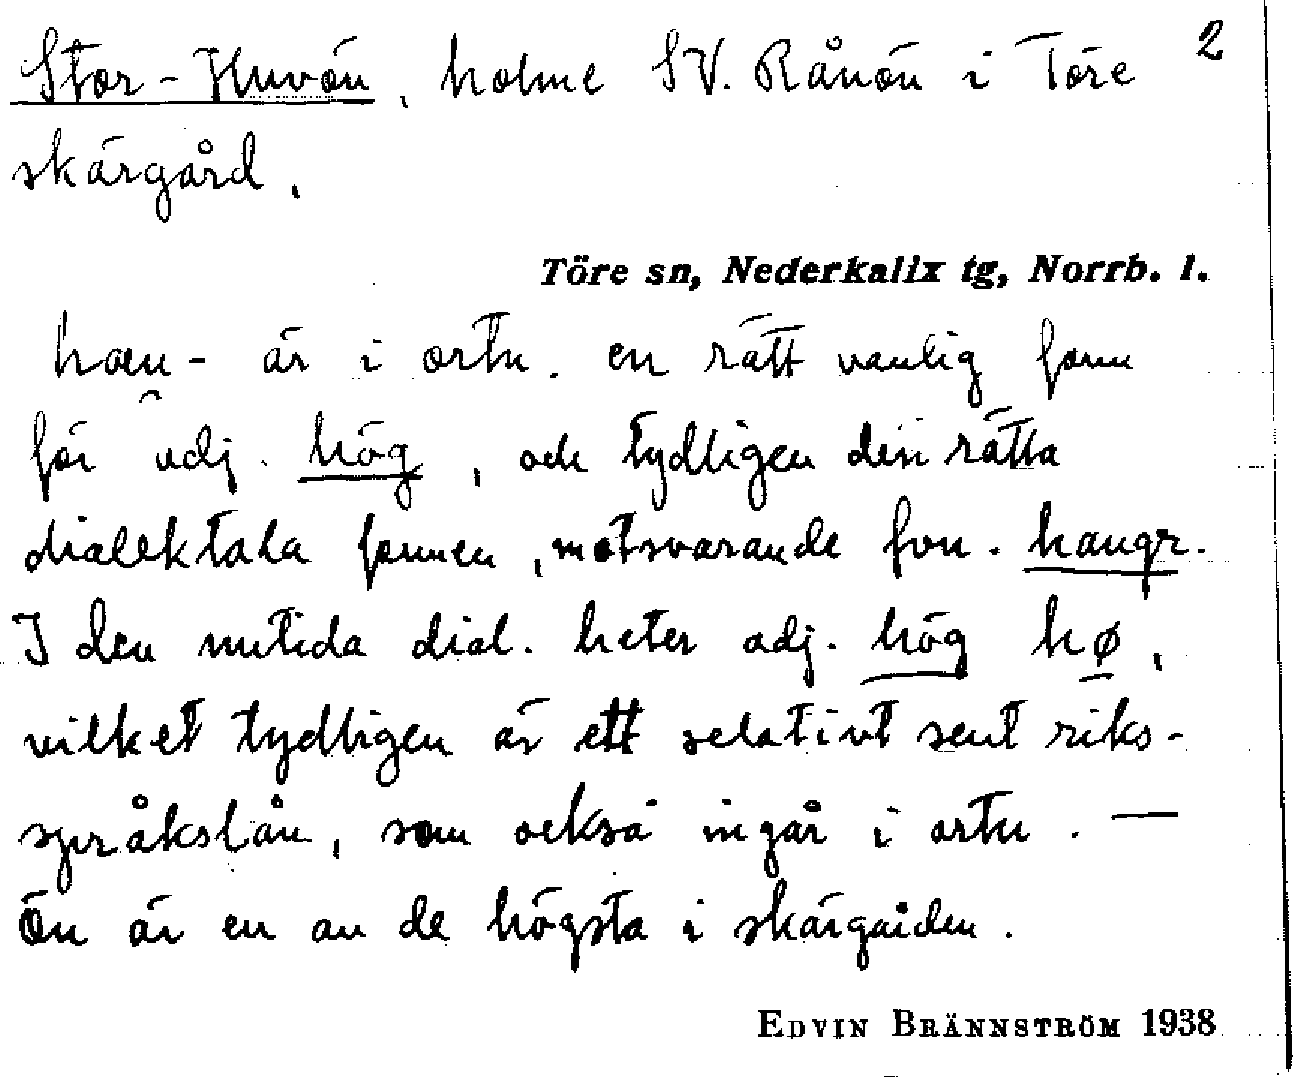 Stor-Huvön, holme SV. Rånön i Töre 2
skärgård.
Töre sn, Nederkalix tg, Norrb. l.
hau- är i ortn. en rätt vanlig form
för adj. hög, och tydligen den rätta
dialektala formen, motsvarande fvn. haugr.
I den nutida dial. heter adj. hög hø,
vilket tydligen är ett relativt sent riks-
språkslån, som också ingår i ortn. —
Ön är en av de högsta i skärgården.
EDVIN BRÄNNSTRÖM 1938